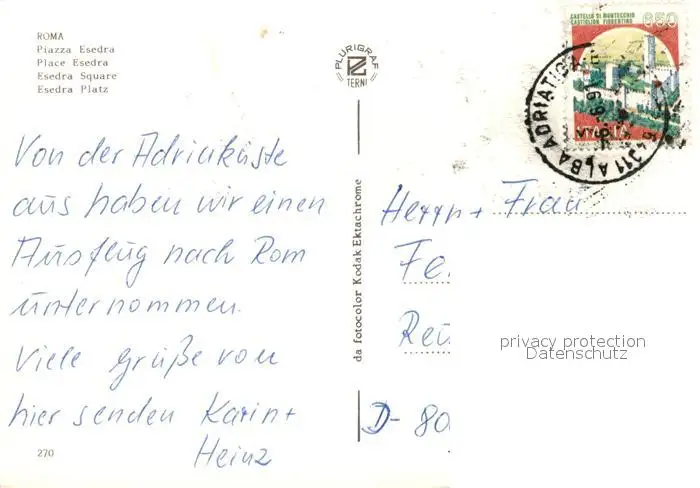 ROMA
Piazza Esedra
Place Esedra
Esedra Square
Esedra Platz
PLURIGRAF
TERNI
CASTELLO DI MONTECCHIO
CASTIGLION FIORENTINO
650
ITALIA
64011 ALBA ADRIATICA
Von der Adriaküste
aus haben wir einen
Ausflug nach Rom
unternommen.
Viele Grüße von
hier senden Karin +
Heinz
da fotocolor Kodak Ektachrome
Herrn + Frau
Fe
D- 80
privacy protection
Datenschutz
270